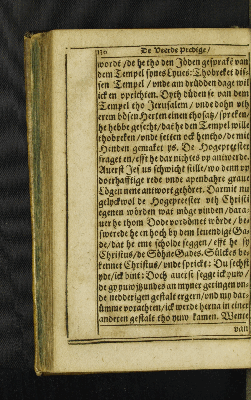 130 De Veerde Predige/
wordt/ de he tho den Jöden gespraken van
dem Tempel synes Lyues: Thobreket dis-
sen Tempel/ vnde am drüdden dage wil
ick en vprichten. Dyth düden se van dem
Tempel tho Jerusalem/ vnde dohn vth
erem bösen Herten einen thosatz/ spreken/
he hebbe gesecht/ dat he den Tempel wille
thobreken/ vnde setten ock hentho/ de mit
Henden gemaket ys. De Hogepreester
fraget en/ effte he dar nichtes vp antwerde.
Auerst Jesus schwicht stille/ wo denn vp
doerhafftige rede vnde apenbahre grauer
Lögen nene antwort gehöret. Darmit nu
gelyckwol de Hogepreester vth Christi
egenen wörden war möge vinden/ darau-
uer he thom Dode vordömet wörde/ be-
swerede he en hoch by dem leuendige Ga-
de/ dat he eme scholde seggen/ effte he sy
Christus/ de Söhne Gades. Sülckes be-
kennet Christus/ vnde sprickt: Du sechst
yd/ ick bint: Doch auerst segge ick yuw/
de gy yuw jtzundes an myner geringen vn-
de nedderigen gestalt ergern/ vnd my dar-
ümme vorachten/ ick werde herna in einer
anderen gestalt tho yuw kamen. Wente
van